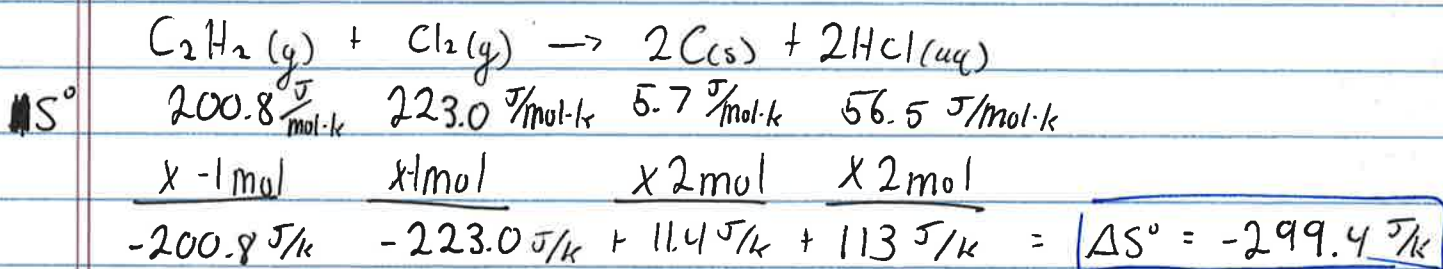 C₂H₂(g) + Cl₂(g) → 2C(s) + 2HCl(aq)
S° 200.8 J/mol·k 223.0 J/mol·k 5.7 J/mol·k 56.5 J/mol·k
x -1 mol x-1mol x 2mol x 2mol
-200.8 J/k -223.0 J/k + 11.4 J/k + 113 J/k = ΔS° = -299.4 J/k